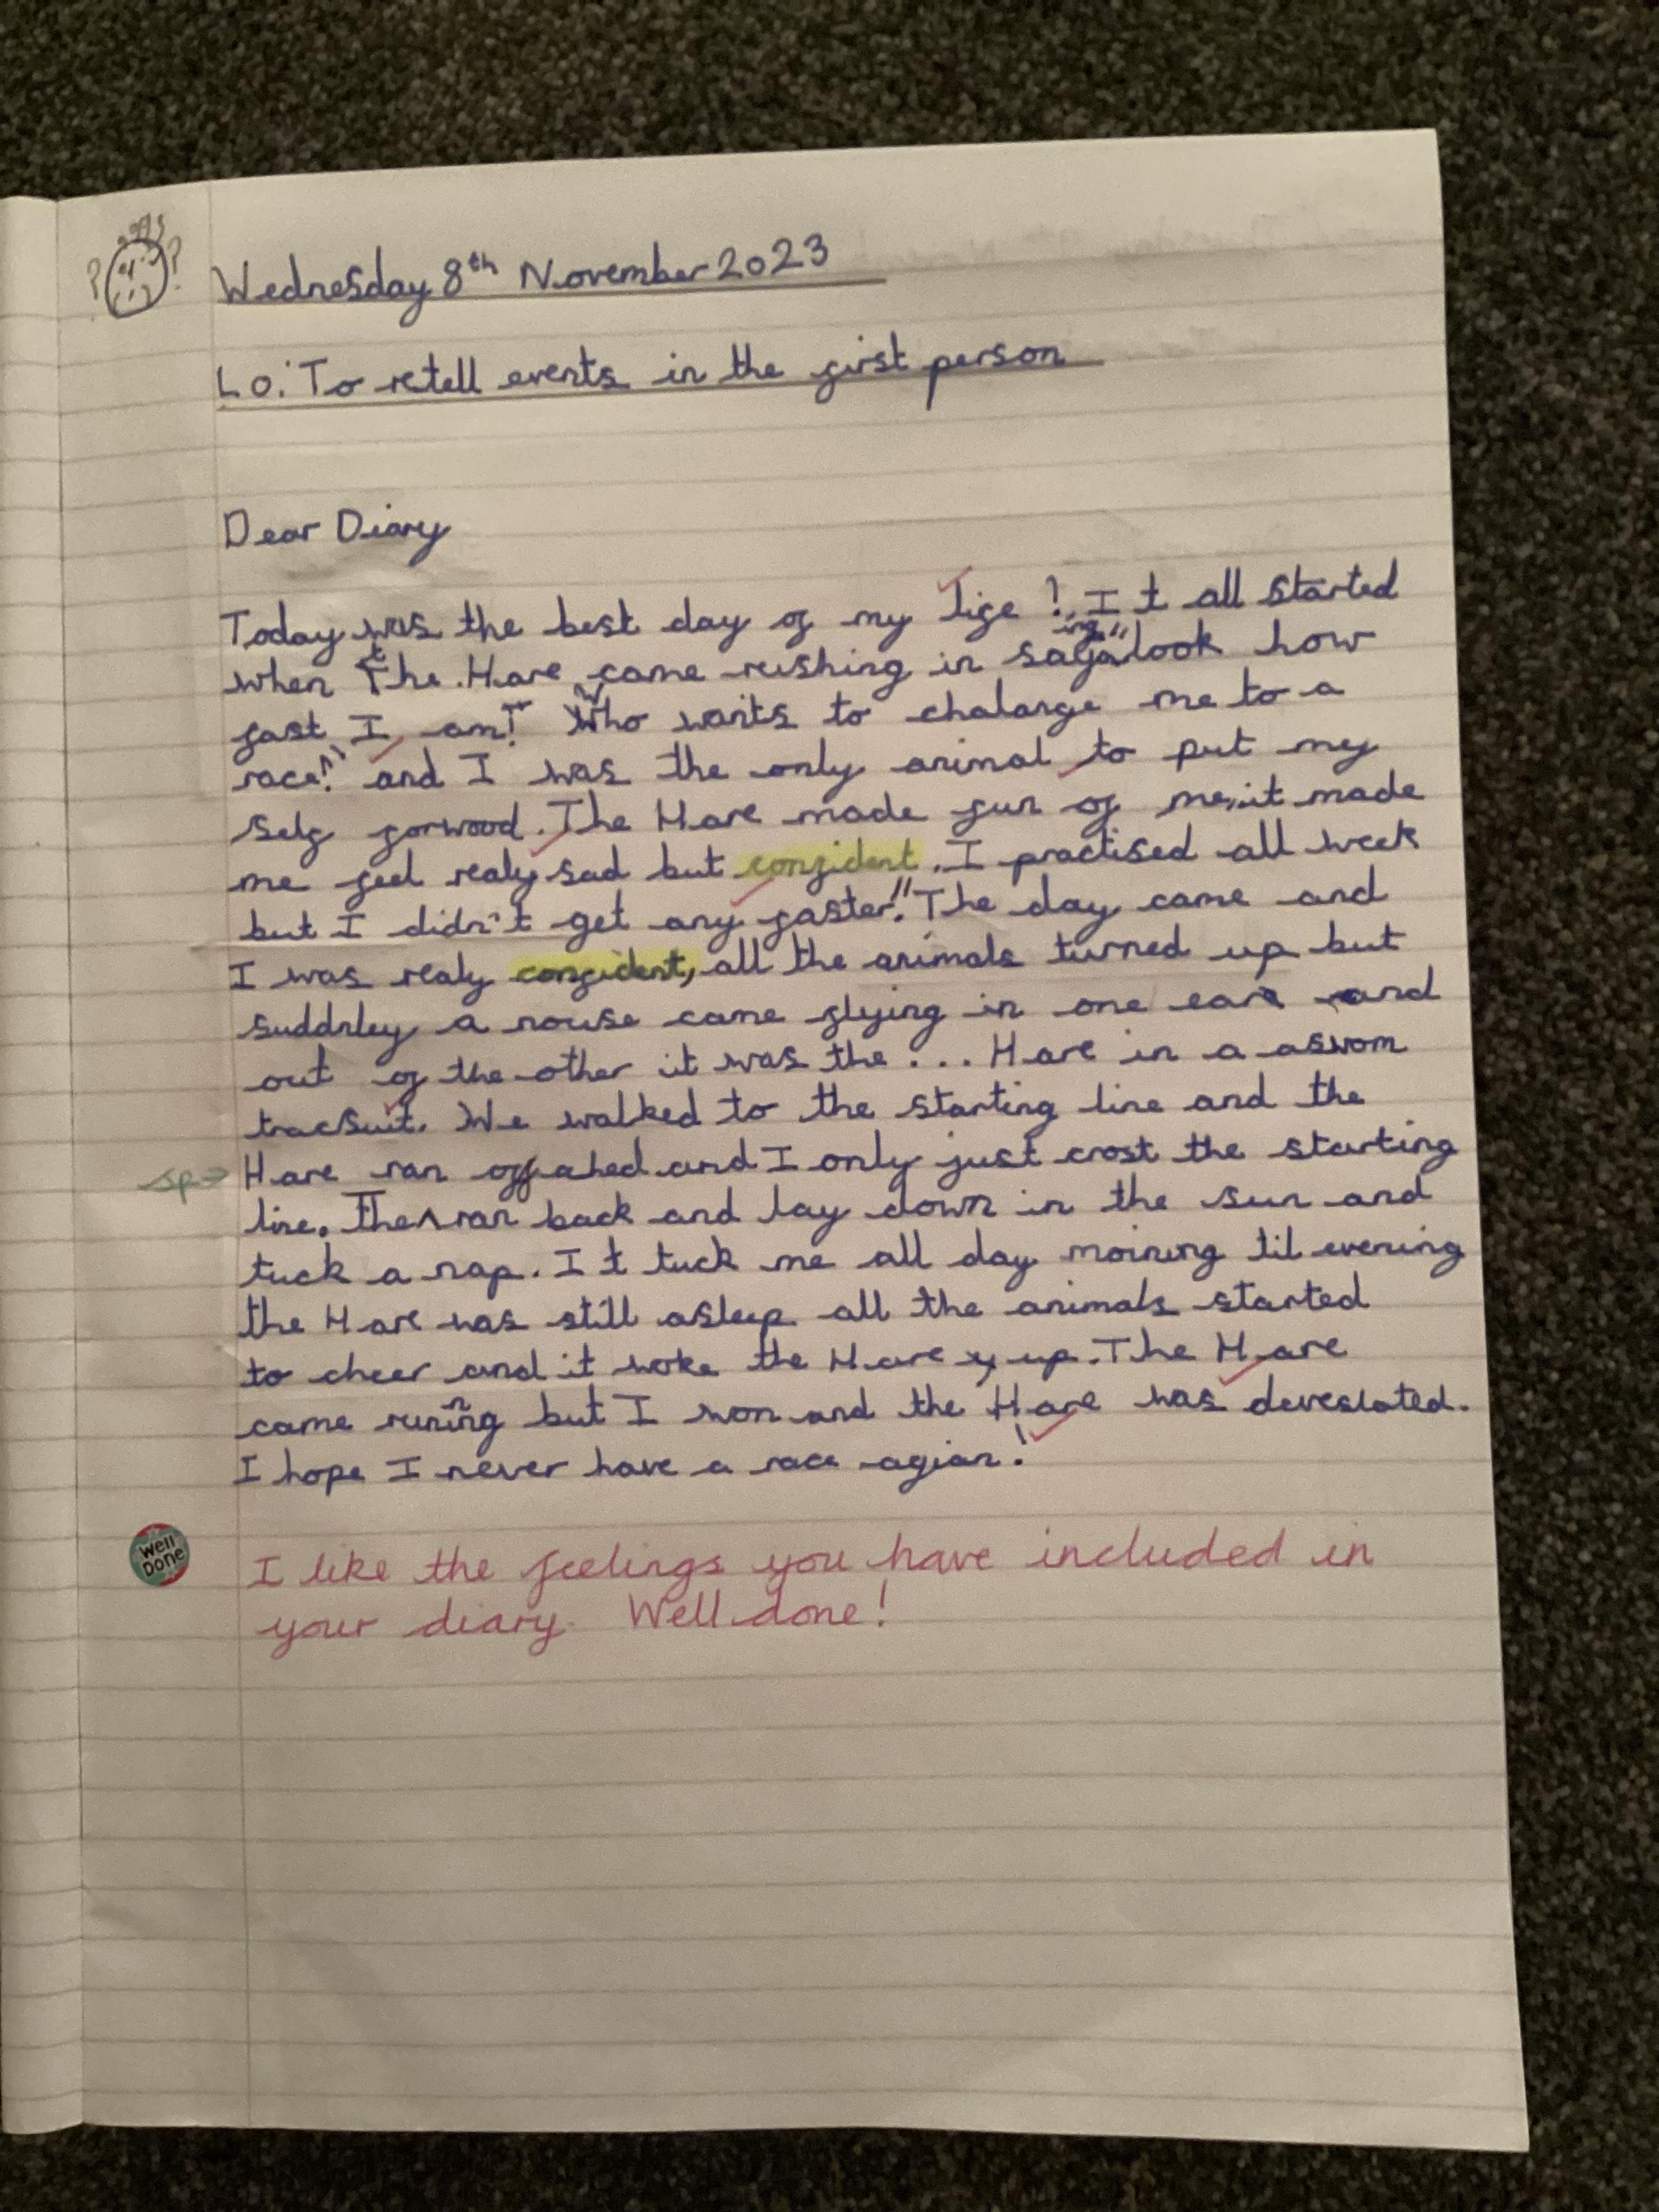 Wednesday 8th November 2023
LO: To retell events in the first person
Dear Diary
Today was the best day of my life! It all started
when the Hare came rushing in saying "look how
fast I am! Who wants to chalange me to a
race!" and I was the only animal to put my
self forwood. The Hare made fun of me, it made
me feel realy sad but confident. I practised all week
but I didn't get any faster!" The day came and
I was realy confident, all the animals turned up but
suddnley a nouse came flying in one ear and
out of the other it was the ... Hare in a aswom
tracsuit. We walked to the starting line and the
sp→ Hare ran off ahed and I only just crost the starting
line. The ran back and lay down in the sun and
tuck a nap. It tuck me all day moining til evening
the Hare was still asleep all the animals started
to cheer and it woke the Hare up. The Hare
came running but I won and the Hare was deveslated.
I hope I never have a race agian!
Well Done
I like the feelings you have included in
your diary. Well done!